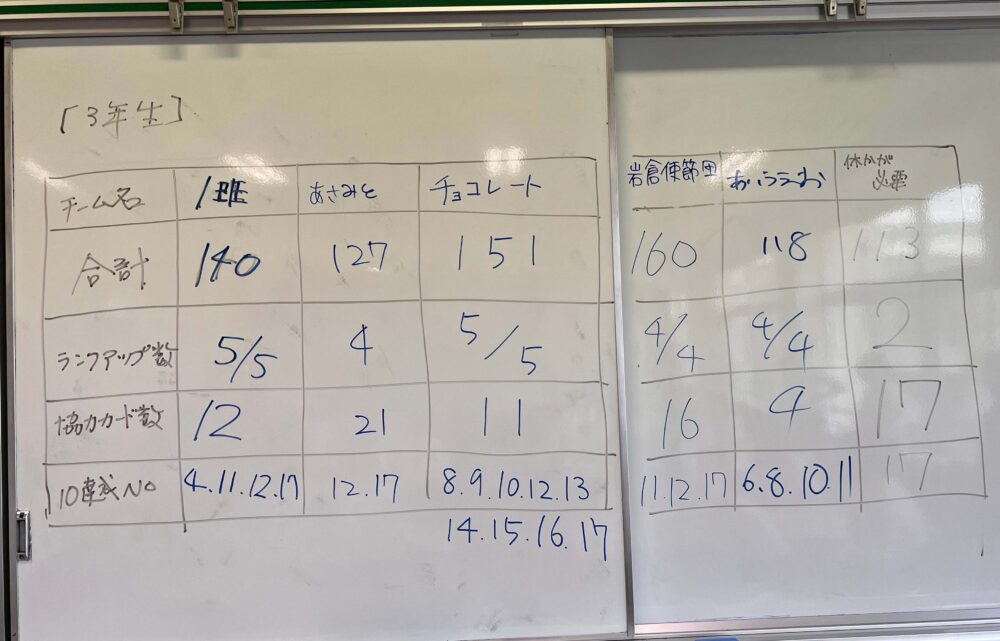 [3年生]
チーム名 1班 あさみと チョコレート 岩倉使節団 あいうえお 休みが必要
合計 140 127 151 160 118 113
ランクアップ数 5/5 4 5/5 4/4 4/4 2
協力カード数 12 21 11 16 4 17
10達成No 4.11.12.17 12.17 8.9.10.12.13 11.12.17 6.8.10.11 17
14.15.16.17